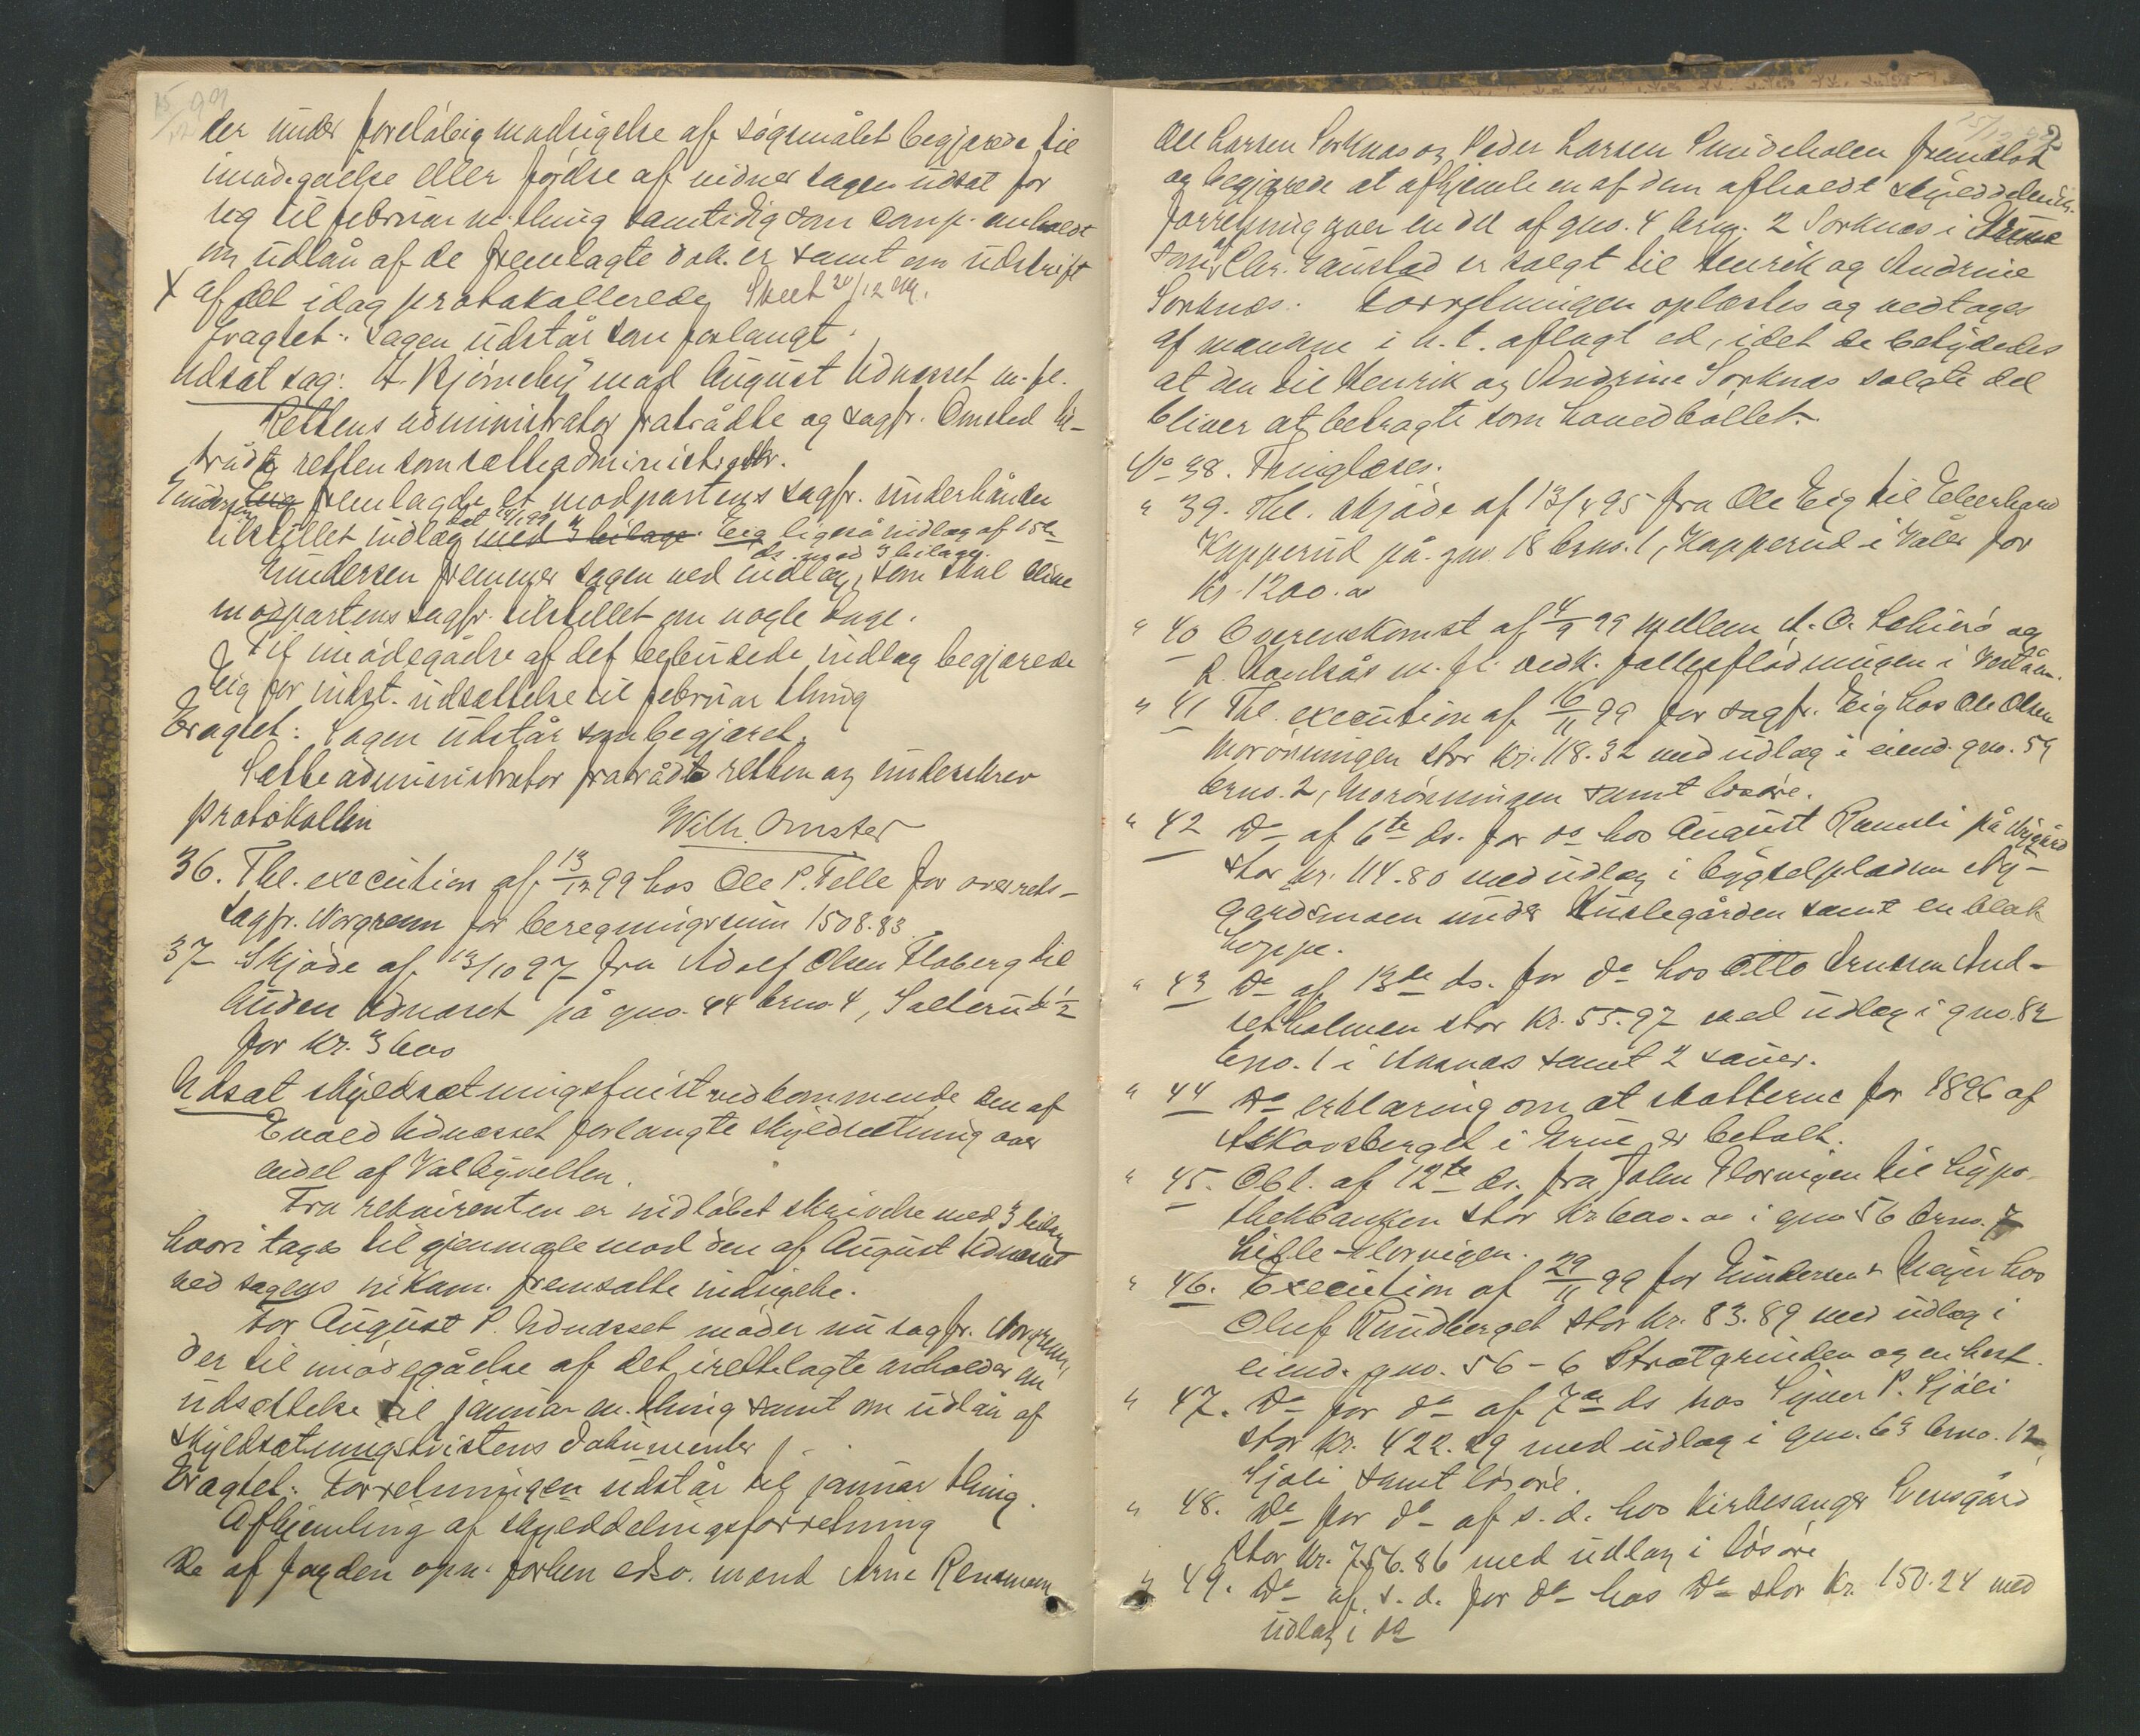 15/12 99
der under foreløbig modsigelse af søgsmålet begjærede til
imødegåelse eller førelse af vidner sagen udsat for
sig til februar m. thing samtidig som comp. anholdt
om udlån af de fremlagte dok. er samt om udskrift
X af det idag protokollerede Skeet 20/12 99.
Eragtet: Sagen udstår som forlangt.
Udsat sag: A. Kjørneby mod August Udnæsset m. fl.
Rettens administrator fratrådte og sagfr. Omsted til-
trådte retten som sætteadministrator.
Gundersen fremlagde et modpartens sagfr. underhånden
tilstillet indlæg dat. med 3 bilage. Eig ligeså indlæg af 15de
ds. med 3 bilage.
Gundersen fremmer sagen ved indlæg, som skal blive
modpartens sagfr. tilstillet om nogle dage.
Til imødegåelse af det bebudede indlæg begjærede
Eig for indst. udsættelse til februar thing
Eragtet: Sagen udstår som begjæret.
Sætteadministrator fratrådte retten og underskrev
protokollen Wilh. Omsted
36. Thl. execution af 13/12 99 hos Ole P. Velle for overrets-
sagfr. Norgrenn for beregningssum 1508.83.
37 Skjøde af 13/10 97 fra Adolf Olsen Floberg til
Auden Udnæset på gno. 44 brno 4, Sætterud 1/2
for kr. 3600
Udsat skyldsætningstvist vedkommende den af
Evald Udnæsset forlangte skyldsætning over
endel af Valbyvollen.
Fra rekvirenten er indløbet skrivelse med 3 bilag
hvori tages til gjenmæle mod den af August Udnæsset
ved sagens inkam. fremsatte indsigelse.
For August P. Udnæsset møder nu sagfr. Norgrenn,
der til imødegåelse af det iretteslagte anholder om
udsættelse til januar m. thing samt om udlån af
skyldsætningstvistens dokumenter.
Eragtet: Forretningen udstår til januar thing.
Afhjemling af skylddelingsforretning
De af fogden opn. forhen edsv. mænd Arne Rensmoen
15/12 99 2
Ole Larsen Sorknæs og Peder Larsen Smideholen fremstod
og begjærede at afhjemle en af dem afholdt skylddelings-
forretning over en del af gno. 4 brno. 2 Sorknæs i Grue
som af Chr. Gaustad er solgt til Henrik og Andrine
Sorknæs. Forretningen oplæstes og vedtages
af mændene i h. t. aflagt ed, idet de betydedes
at den til Henrik og Andrine Sorknæs solgte del
bliver at betragte som hovedbøllet.
No 38. Thinglæses.
" 39. Thl. skjøde af 13/4 95 fra Ole Eig til Edverhard
Kapperud på gno 18 brno. 1, Kapperud i Våler for
kr. 1200.00
" 40 Overenskomst af 4/9 99 mellem A. O. og
R. m. fl. vedk. fællesflødningen i
" 41 Thl. execution af 16/11 99 for sagfr. Eig hos Ole Olsen
Morønningen stor kr. 118.32 med udlæg i eiend. gno. 59
brno. 2, Morønningen samt løsøre.
" 42 Do af 6te ds. for do hos August Ramsli på Nygård
stor kr. 114.80 med udlæg i bygselpladsen Ny-
gardsmoen under Huslegården samt en blak
hoppe.
" 43 Do af 13de ds. for do hos Otto Arnesen And-
setholmen stor kr. 55.97 med udlæg i gno. 82
brno. 1 i Aasnæs samt 2 sauer.
" 44 Do erklæring om at skatterne for 1896 af
Askovsberget i Grue er betalt.
" 45. Obl. af 12te ds. fra John Flornigen til hypo-
thekbanken stor kr 600.00 i gno 56 brno. 7
Lille-Flornigen.
" 46. Execution af 29/11 99 for Gundersen & Meyer hos
Oluf Rundberget stor kr. 83.89 med udlæg i
eiend. gno. 56-6 Strætgrinden og en hest.
" 47. Do for do af 7de ds hos Syver P. Sjøli
stor kr. 422.29 med udlæg i gno. 63 brno. 12
Sjøli samt løsøre.
" 48. Do for do af s. d. hos kirkesanger Svensgård
stor kr. 756.86 med udlæg i løsøre
" 49. Do af s. d. for do hos Do stor kr. 150.24 med
udlæg i do